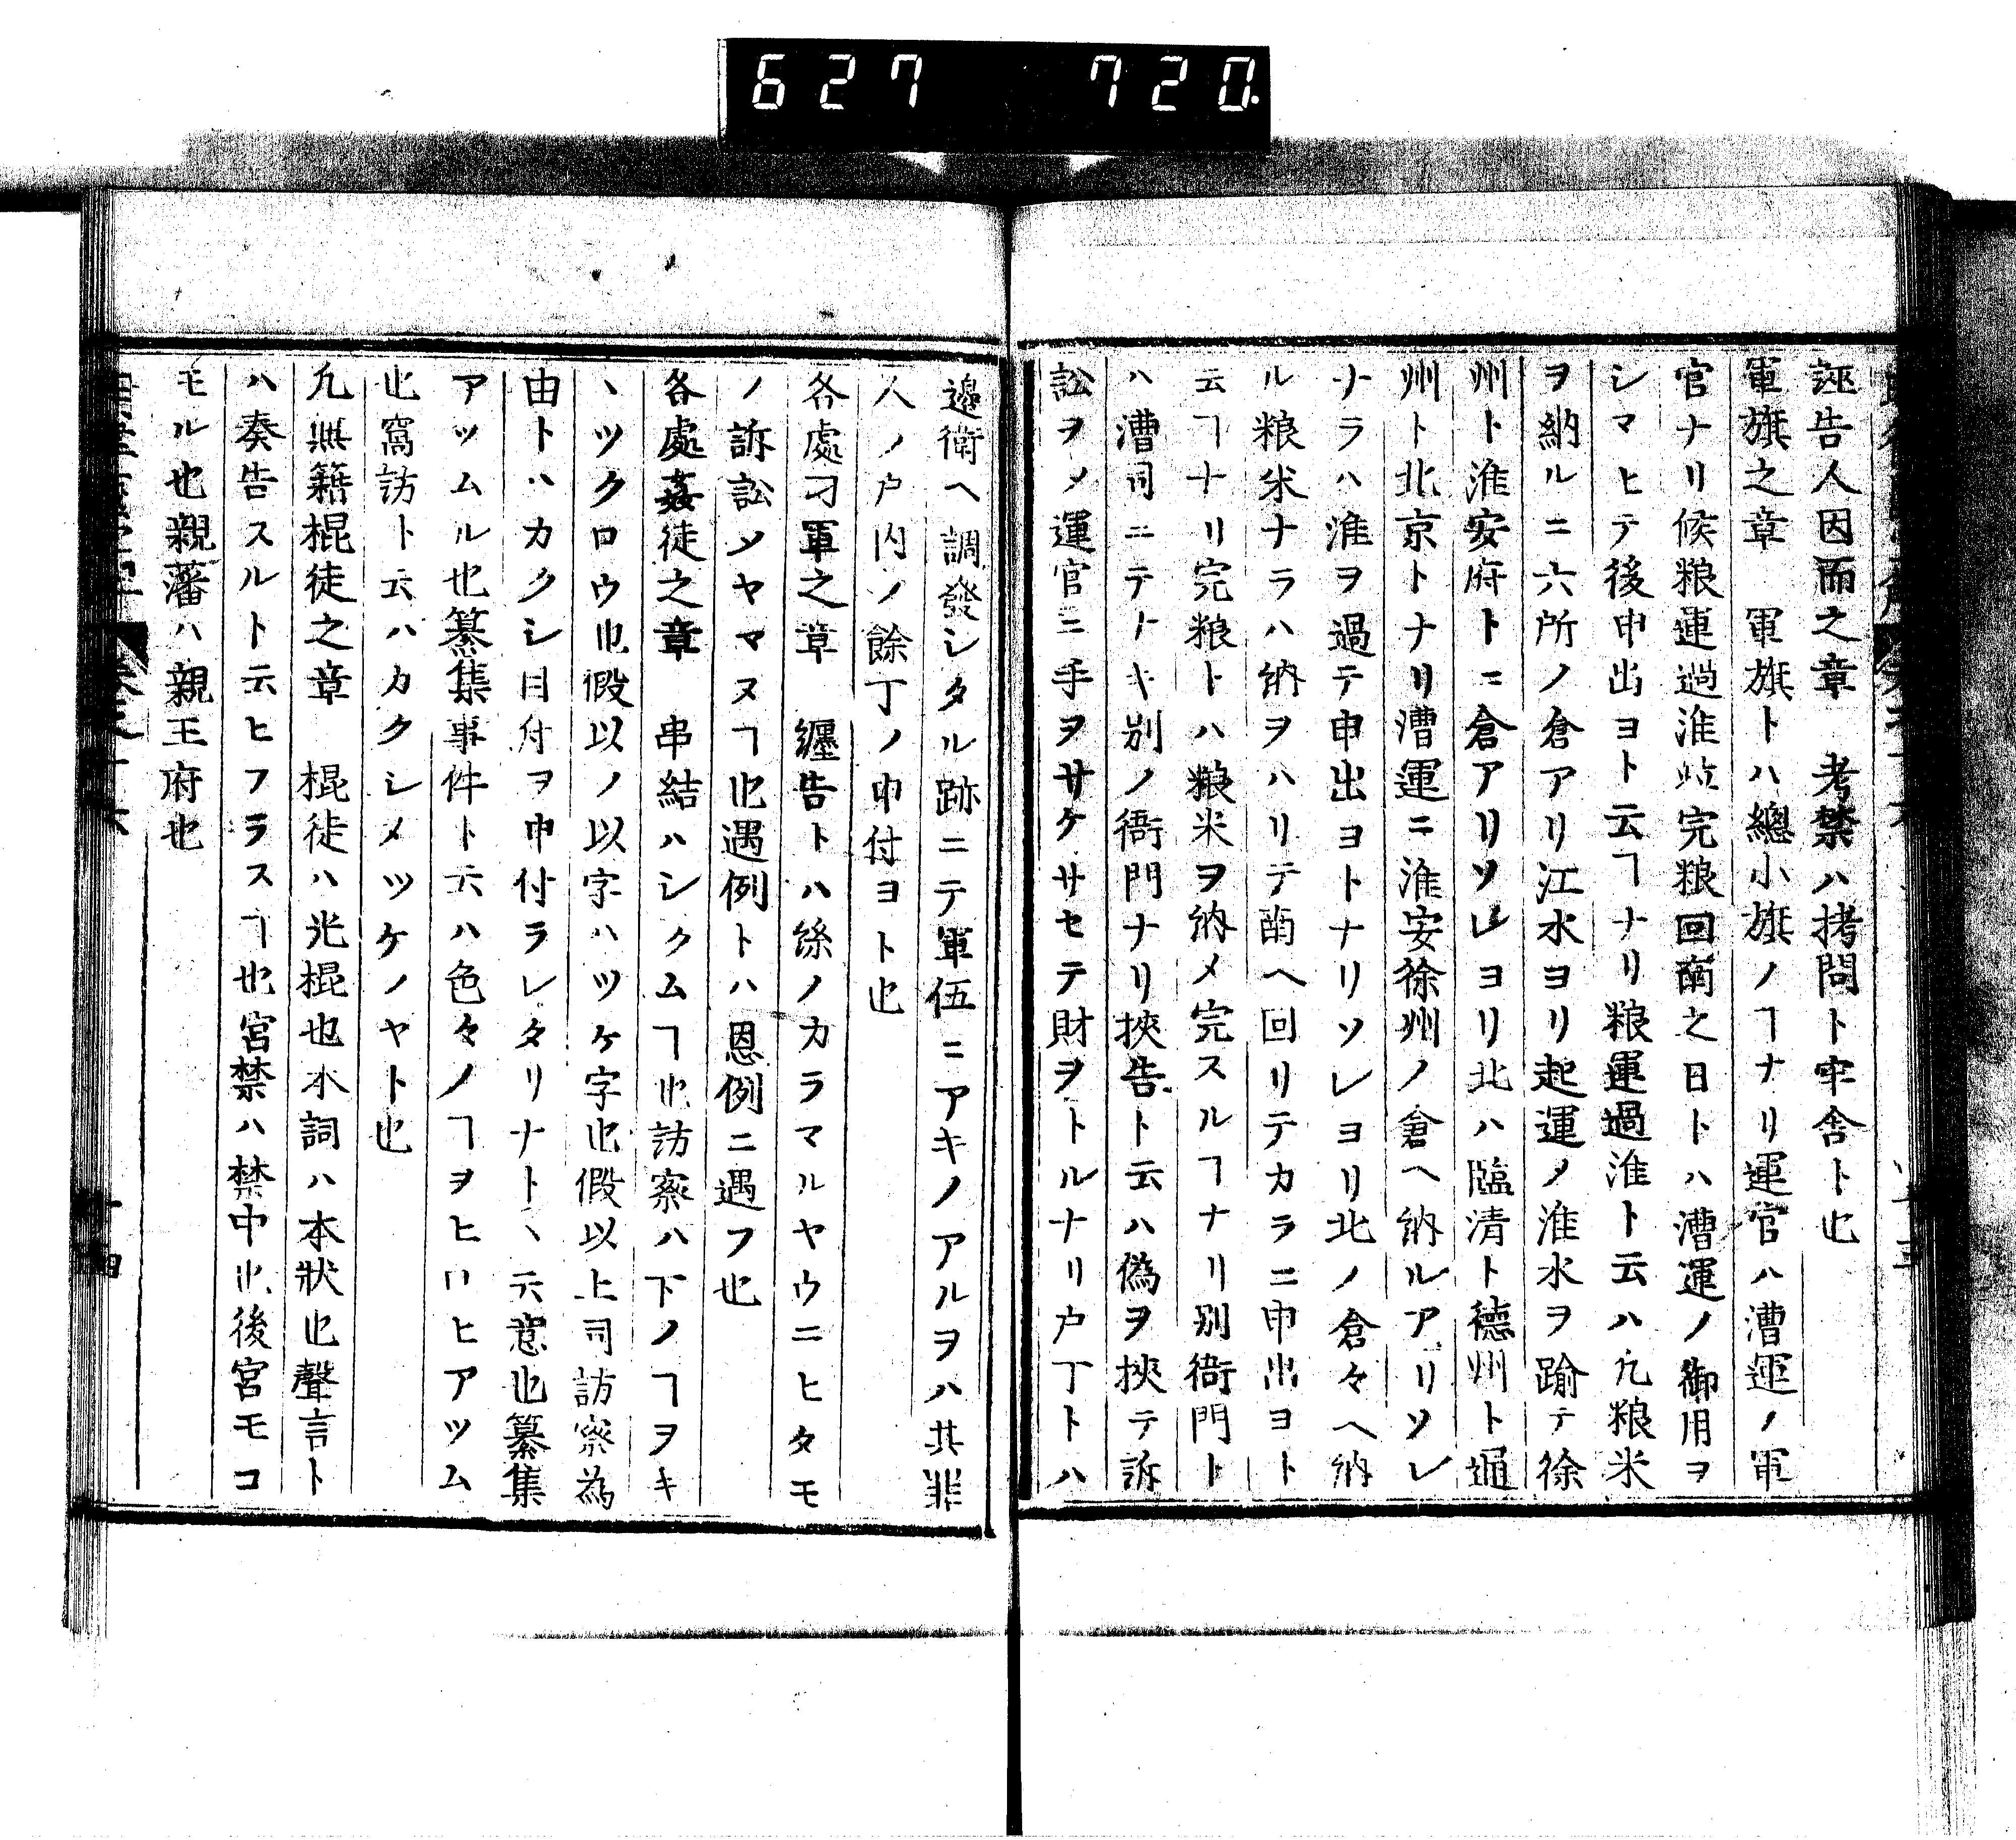 627 720
誣告人因而之章　考禁ハ拷問ト牢舎ト也
軍旗之章　軍旗トハ總小旗ノヿナリ運官ハ漕運ノ軍
官ナリ候粮運過淮並完粮回南之日トハ漕運ノ御用ヲ
シマヒテ後申出ヨト云ヿナリ粮運過淮ト云ハ凡粮米
ヲ納ルニ六所ノ倉アリ江水ヨリ起運メ淮水ヲ踰テ徐
州ト淮安府トニ倉アリソレヨリ北ハ臨清ト德州ト通
州ト北京トナリ漕運ニ淮安徐州ノ倉ヘ納ルアリソレ
ナラハ淮ヲ過テ申出ヨトナリソレヨリ北ノ倉々ヘ納
ル粮米ナラハ納ヲハリテ南ヘ回リテカラニ申出ヨト
云ヿナリ完粮トハ粮米ヲ納メ完スルヿナリ別衙門ト
ハ漕司ニテナキ別ノ衙門ナリ挾告ト云ハ偽ヲ挾テ訴
訟ヲメ運官ニ手ヲサケサセテ財ヲトルナリ户丁トハ
邊衛ヘ調發シタル跡ニテ軍伍ニアキノアルヲハ其罪
人ノ户内ノ餘丁ノ申付ヨト也
各處刁軍之章　纒告トハ絲ノカラマルヤウニヒタモ
ノ訴訟メヤマヌヿ也遇例トハ恩例ニ遇フ也
各處姦徒之章　串結ハシクムヿ也訪察ハ下ノヿヲキ
ヽツクロウ也假以ノ以字ハツケ字也假以上司訪察為
由トハカクシ目付ヲ申付ラレタリナトヽ云意也纂集
アツムル也纂集事件ト云ハ色々ノヿヲヒロヒアツム
也窩訪ト云ハカクシメツケノヤト也
凡無籍棍徒之章　棍徒ハ光棍也本詞ハ本狀也聲言ト
ハ奏告スルト云ヒフラスヿ也宮禁ハ禁中也後宮モコ
モル也親藩ハ親王府也